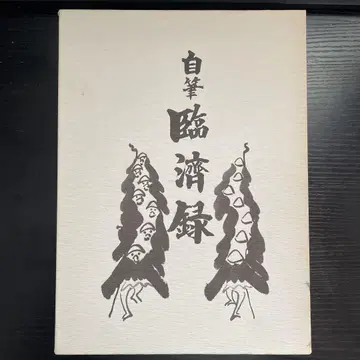 自筆
臨濟録